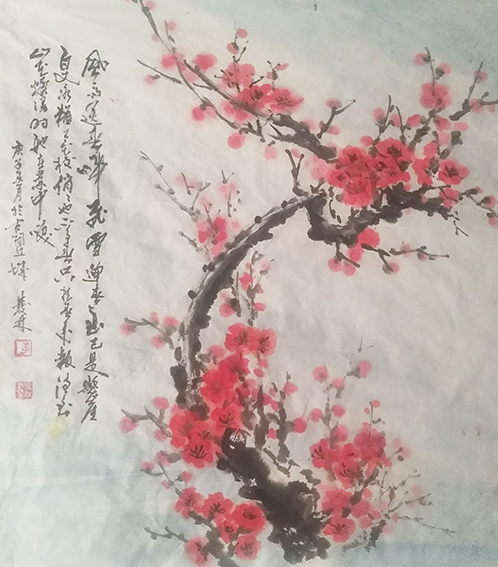 风雨送春归飛雪迎春到已是懸崖
百丈冰犹有花枝俏也不争春只把春来報待到
山花爛漫时她在丛中笑
庚子 月於古 城